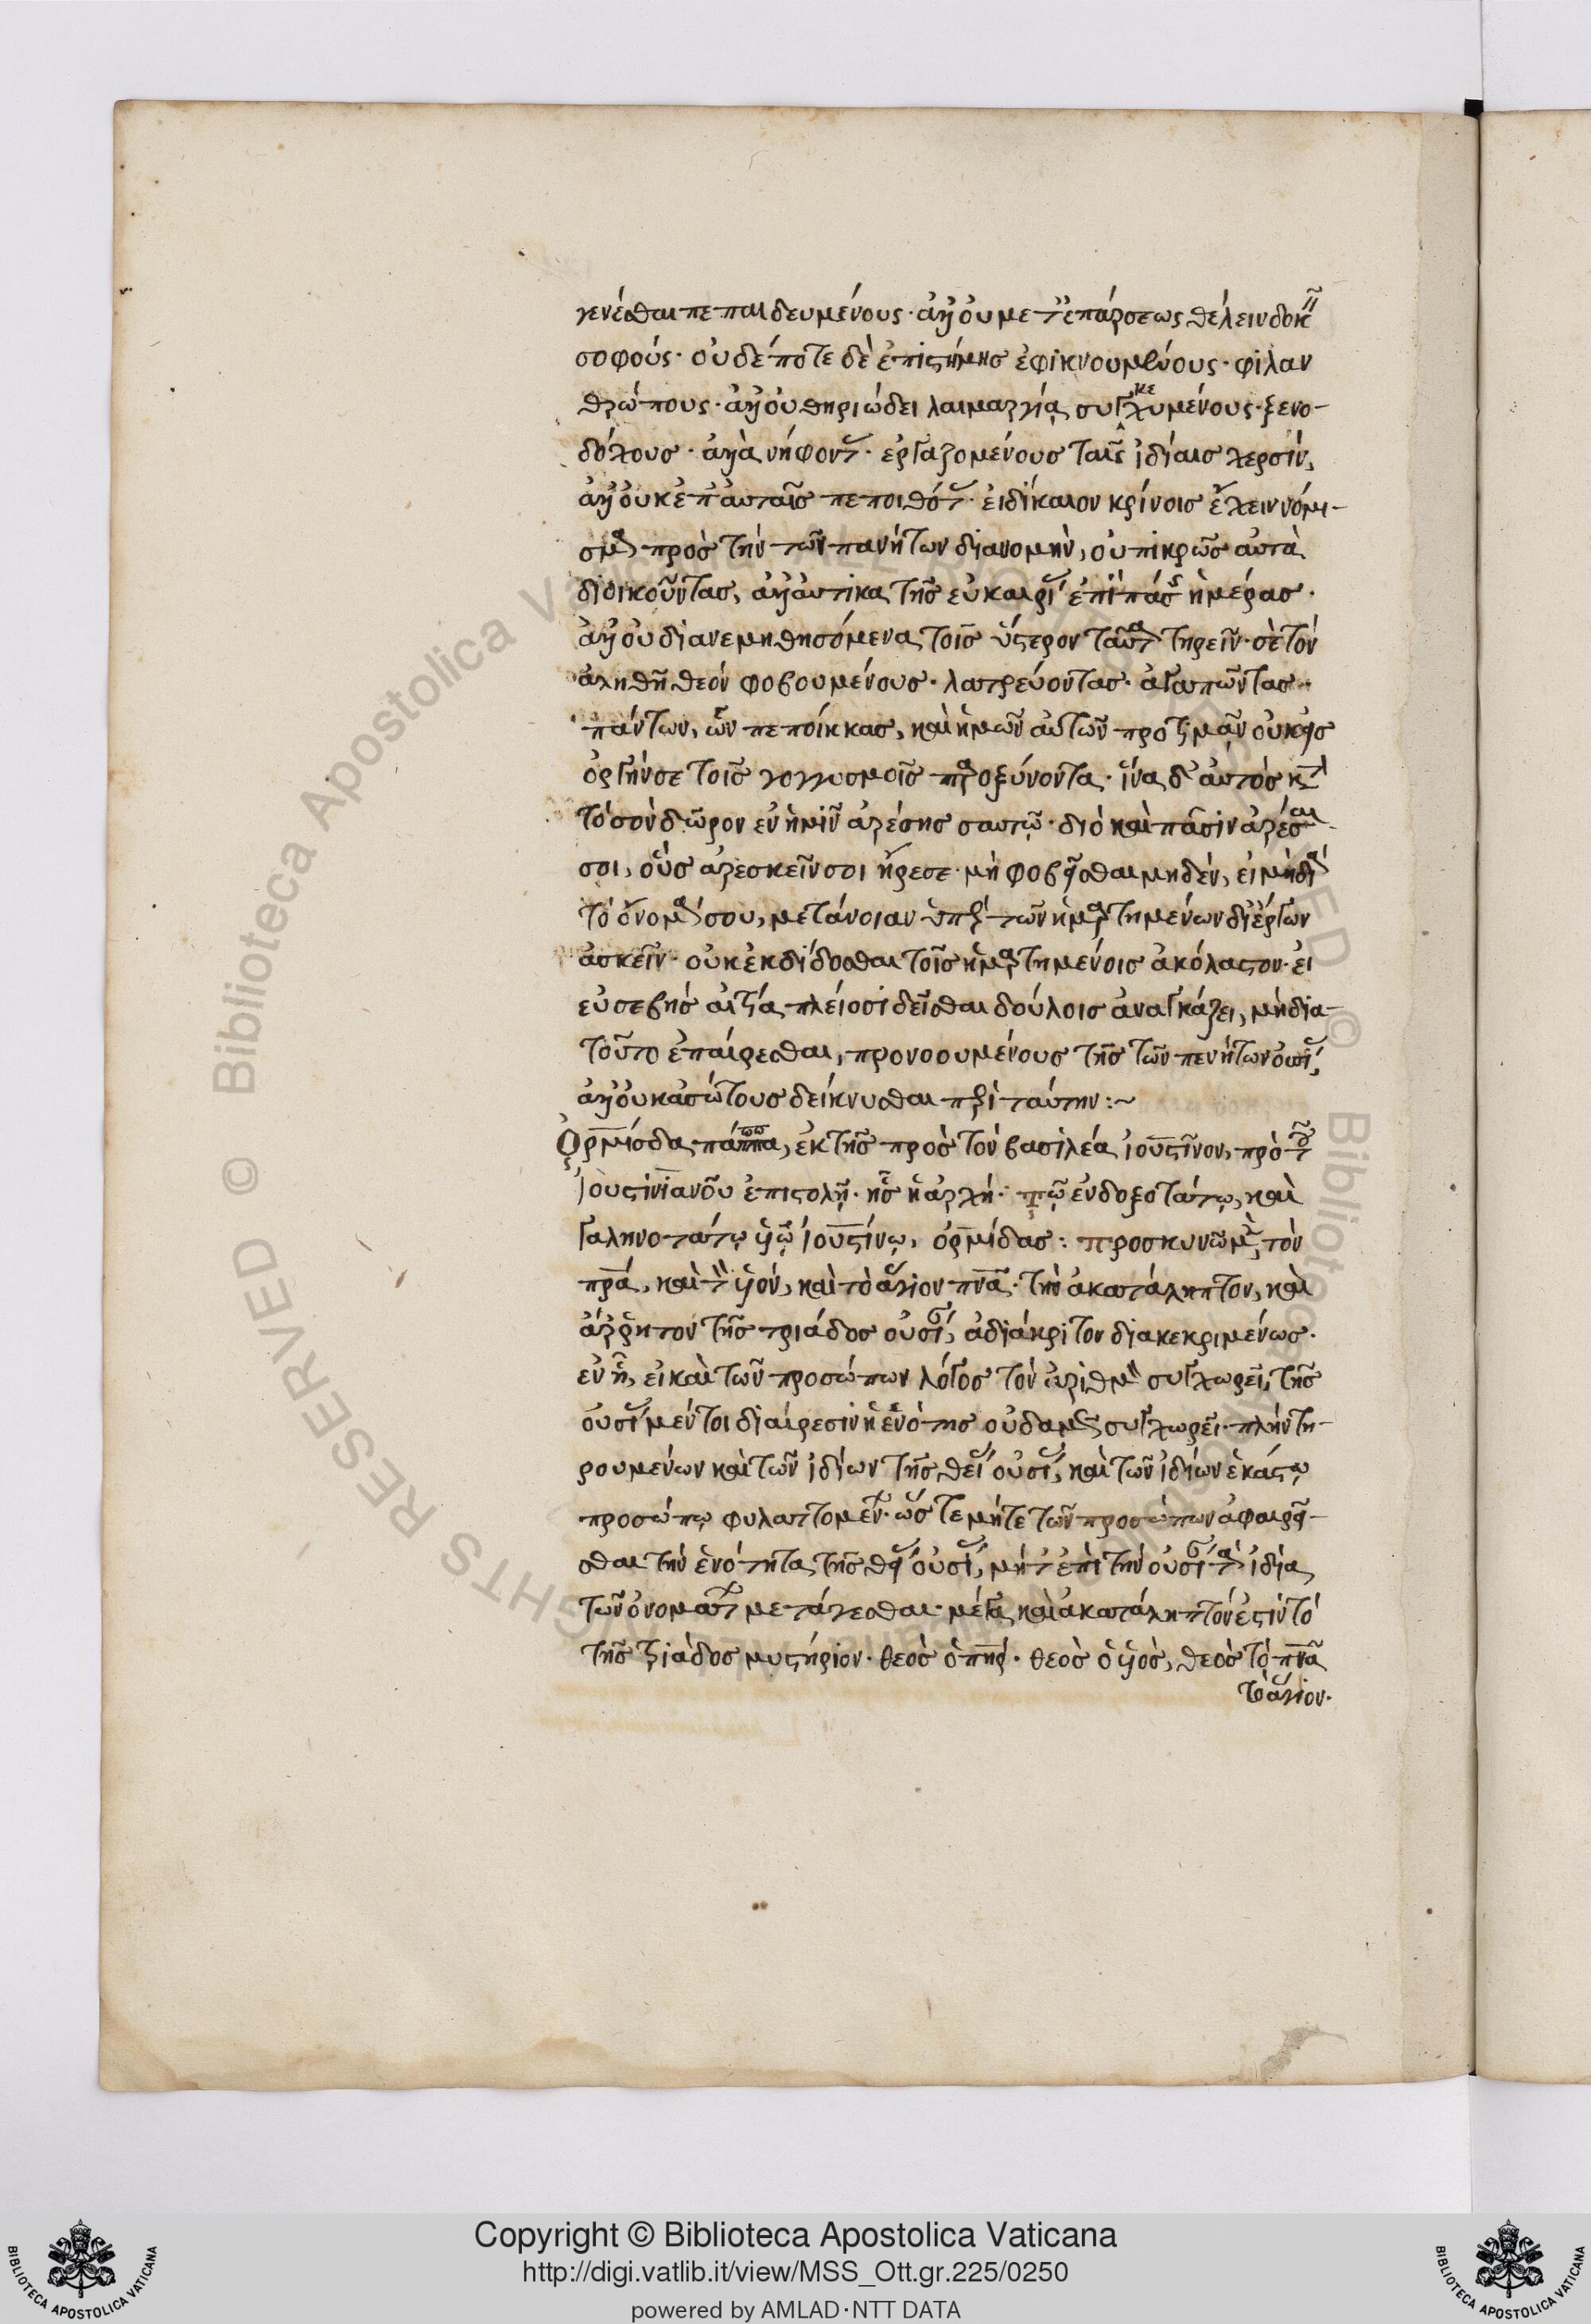 γενέσθαι πεπαιδευμένους· ἀλλ' οὐ μετ' ἐπάρσεως θέλειν δοκεῖν
σοφούς· οὐδέποτε δὲ ἐπιστήμης ἐφικνουμένους· φιλαν
θρώπους· ἀλλ' οὐ θηριώδει λαιμαργίᾳ συγκεχυμένους· ξενο-
δόχους· ἀλλὰ νήφοντας· ἐργαζομένους ταῖς ἰδίαις χερσίν,
ἀλλ' οὐκ ἐπ' αὐταῖς πεποιθότας· εἰ δίκαιον κρίνοις ἔχειν νόμι-
σμα πρὸς τὴν τῶν πενήτων διανομὴν, οὐ πικρῶς αὐτὰ
διοικοῦντας, ἀλλ' αὐτίκα τῆς εὐκαιρίας ἐπὶ πάσης ἡμέρας·
ἀλλ' οὐ διανεμηθησόμενα τοῖς ὕστερον ταῦτα τηρεῖν· σὲ τὸν
ἀληθῆ θεὸν φοβουμένους· λατρεύοντας· ἀγαπῶντας·
πάντων, ὧν πεποίηκας, καὶ ἡμῶν αὐτῶν προτιμᾶν οὐκ εἰς
ὀργήν σε τοῖς γογγυσμοῖς παροξύνοντα· ἵνα δ' αὐτὸς κατὰ
τὸ σὸν δῶρον ἐν ἡμῖν ἀρέσῃς σαυτῷ· διὸ καὶ πᾶσιν ἀρέσαι
σοι, οὓς ἀρεσκεῖν σοι ἤρεσε· μὴ φοβεῖσθαι μηδὲν, εἰ μὴ διὰ
τὸ ὄνομά σου, μετάνοιαν ὑπὲρ τῶν ἡμαρτημένων δι' ἔργων
ἀσκεῖν· οὐκ ἐκδίδοσθαι τοῖς ἡμαρτημένοις ἀκόλαστον· εἰ
εὐσεβὴς αἰτία πλείοσι δεῖσθαι δούλοις ἀναγκάζει, μὴ δια-
τοῦτο ἐπαίρεσθαι, προνοουμένους τῆς τῶν πενήτων
ἀλλ' οὐκ ἀσώτους δείκνυσθαι περὶ ταύτην:~
Ὁρμίσδα πάππα, ἐκ τῆς πρὸς τὸν βασιλέα ἰουστῖνον, πρὸ τοῦ
Ἰουστινιανοῦ ἐπιστολῇ· ἧς ἡ ἀρχή· τῷ ἐνδοξοτάτῳ, καὶ
γαληνοτάτῳ υἱῷ ἰουστίνῳ, ὁρμίδας: προσκυνῶμεν τὸν
πρα, καὶ τὸν υἱόν, καὶ τὸ ἅγιον πνα· τὴν ἀκατάληπτον, καὶ
ἄρρητον τῆς τριάδος οὐσίαν, ἀδιάκριτον διακεκριμένως·
ἐν ᾗ, εἰ καὶ τῶν προσώπων λόγος τὸν ἀριθμὸν συγχωρεῖ, τῆς
οὐσίας μέντοι διαίρεσιν ἡ ἑνότης οὐδαμῶς συγχωρεῖ· πλὴν τη-
ρουμένων καὶ τῶν ἰδίων τῆς θείας οὐσίας, καὶ τῶν ἰδίων ἑκάστῳ
προσώπῳ φυλαττομένων· ὥστε μήτε τῶν προσώπων ἀφαιρεῖ-
σθαι τὴν ἑνότητα τῆς θείας οὐσίας, μήτε ἐπὶ τὴν οὐσίαν τὰ ἰδία
τῶν ὀνομάτων μετάγεσθαι· μέγα καὶ ἀκατάληπτόν ἐστιν τὸ
τῆς τριάδος μυστήριον· θεὸς ὁ πηρ· θεὸς ὁ υἱὸς, θεὸς τὸ πνα
τὸ ἅγιον·
Copyright © Biblioteca Apostolica Vaticana
http://digi.vatlib.it/view/MSS_Ott.gr.225/0250
powered by AMLAD·NTT DATA